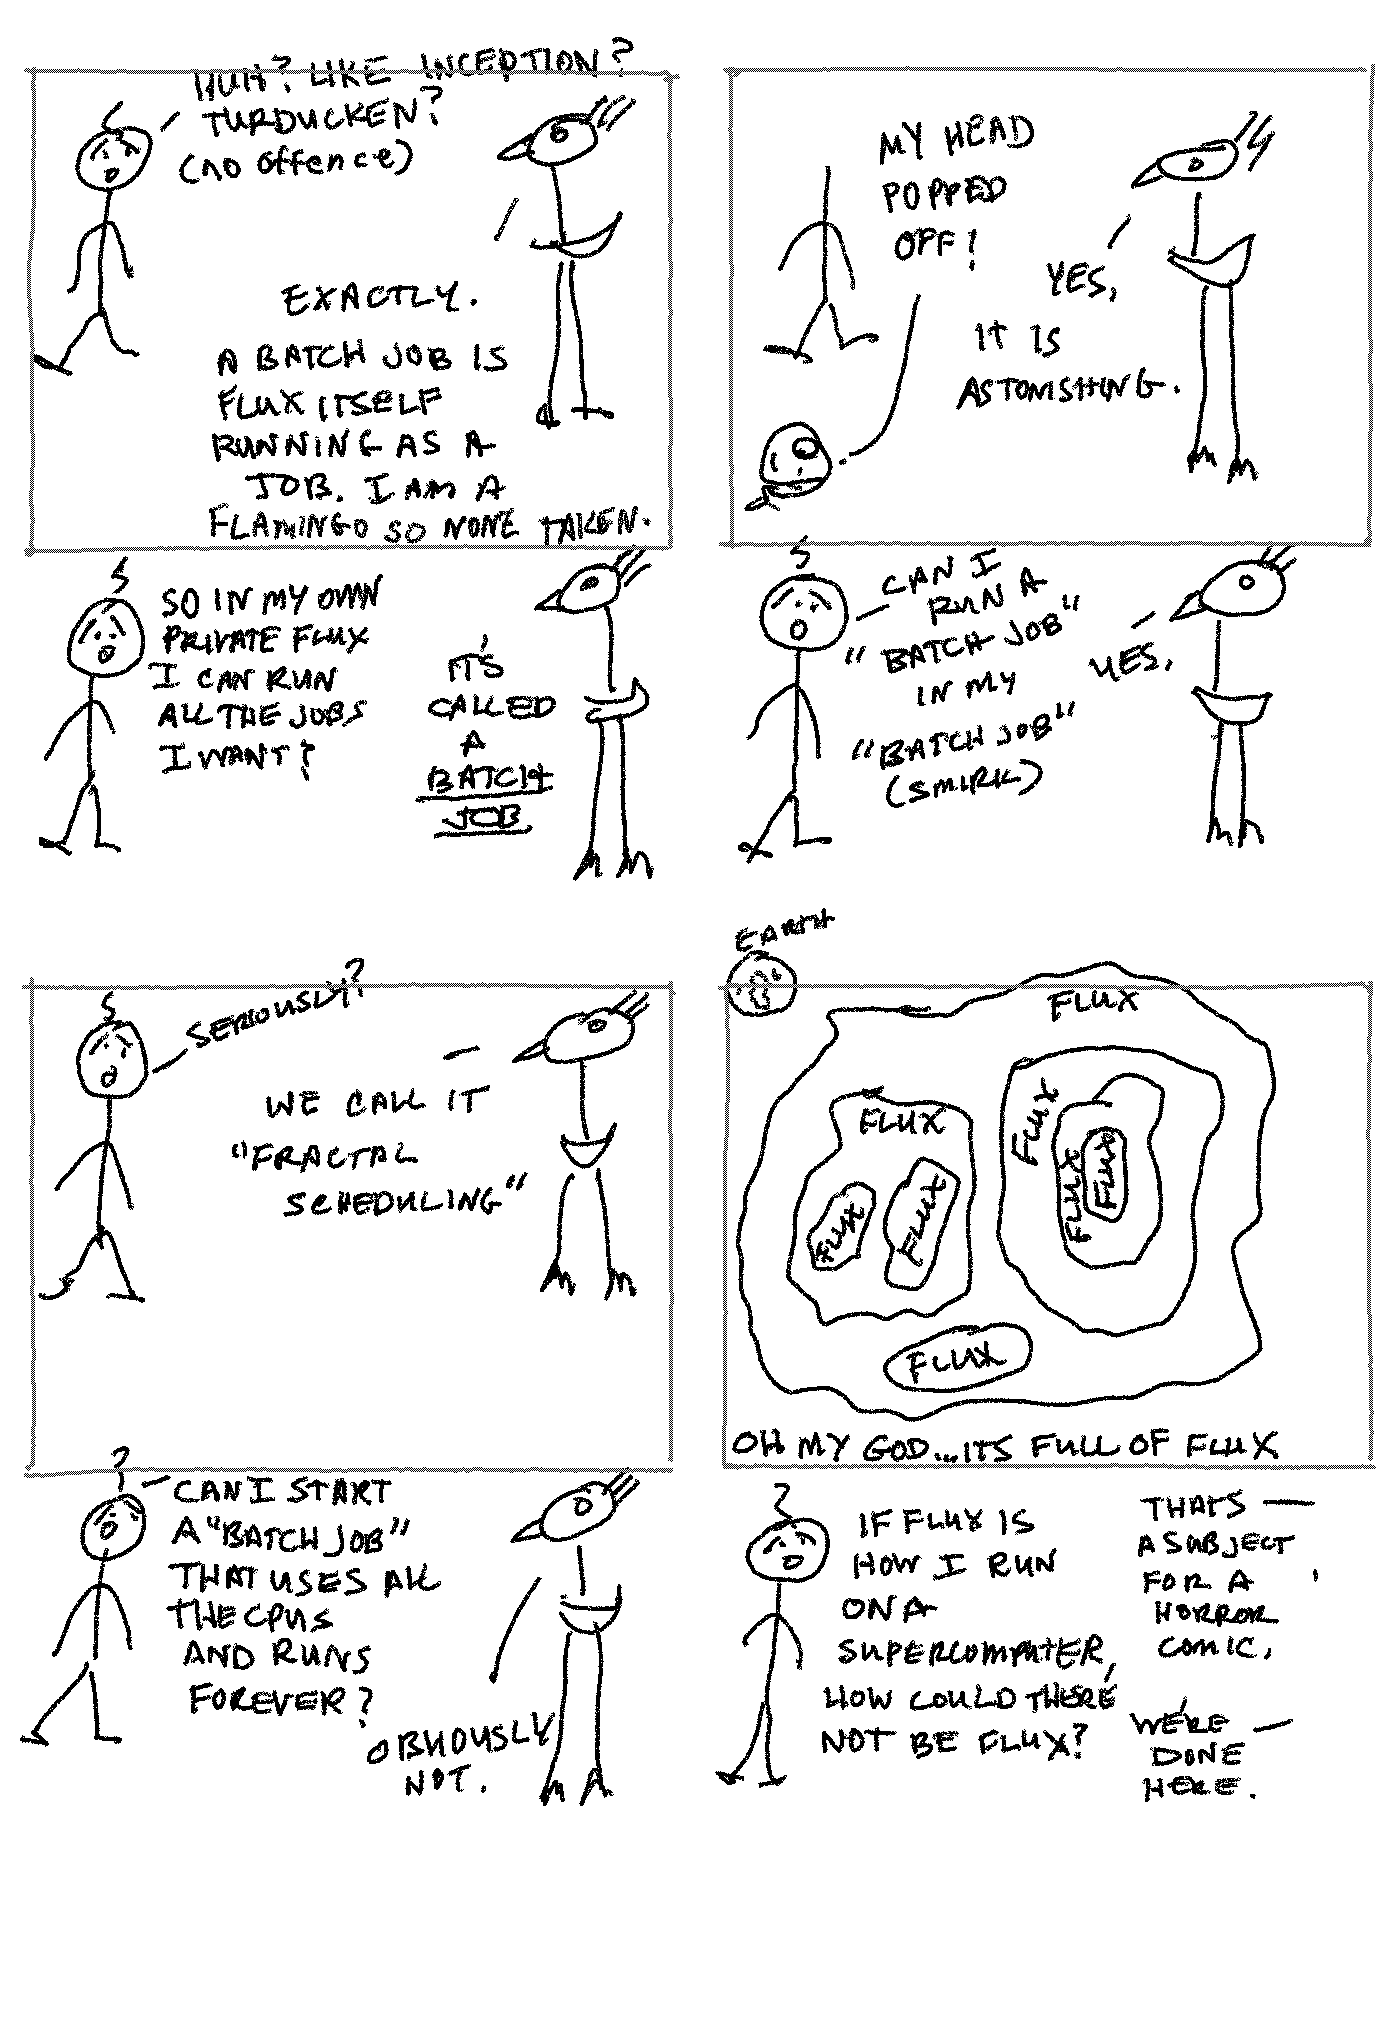 HUH? LIKE INCEPTION?
TURDUCKEN?
(no offence)
EXACTLY.
A BATCH JOB IS
FLUX ITSELF
RUNNING AS A
JOB. I AM A
FLAMINGO SO NONE TAKEN.
MY HEAD
POPPED
OFF!
YES,
IT IS
ASTONISHING.
SO IN MY OWN
PRIVATE FLUX
I CAN RUN
ALL THE JOBS
I WANT?
IT'S
CALLED
A
BATCH
JOB
CAN I
RUN A
"BATCH JOB"
IN MY
"BATCH JOB"
(SMIRK)
YES,
SERIOUSLY?
WE CALL IT
"FRACTAL
SCHEDULING"
EARTH
FLUX
FLUX
FLUX
FLUX
FLUX
FLUX
FLUX
FLUX
OH MY GOD...ITS FULL OF FLUX
CAN I START
A "BATCH JOB"
THAT USES ALL
THE CPUS
AND RUNS
FOREVER?
OBVIOUSLY
NOT.
IF FLUX IS
HOW I RUN
ON A
SUPERCOMPUTER,
HOW COULD THERE
NOT BE FLUX?
THATS
A SUBJECT
FOR A
HORROR
COMIC,
WE'RE
DONE
HERE.